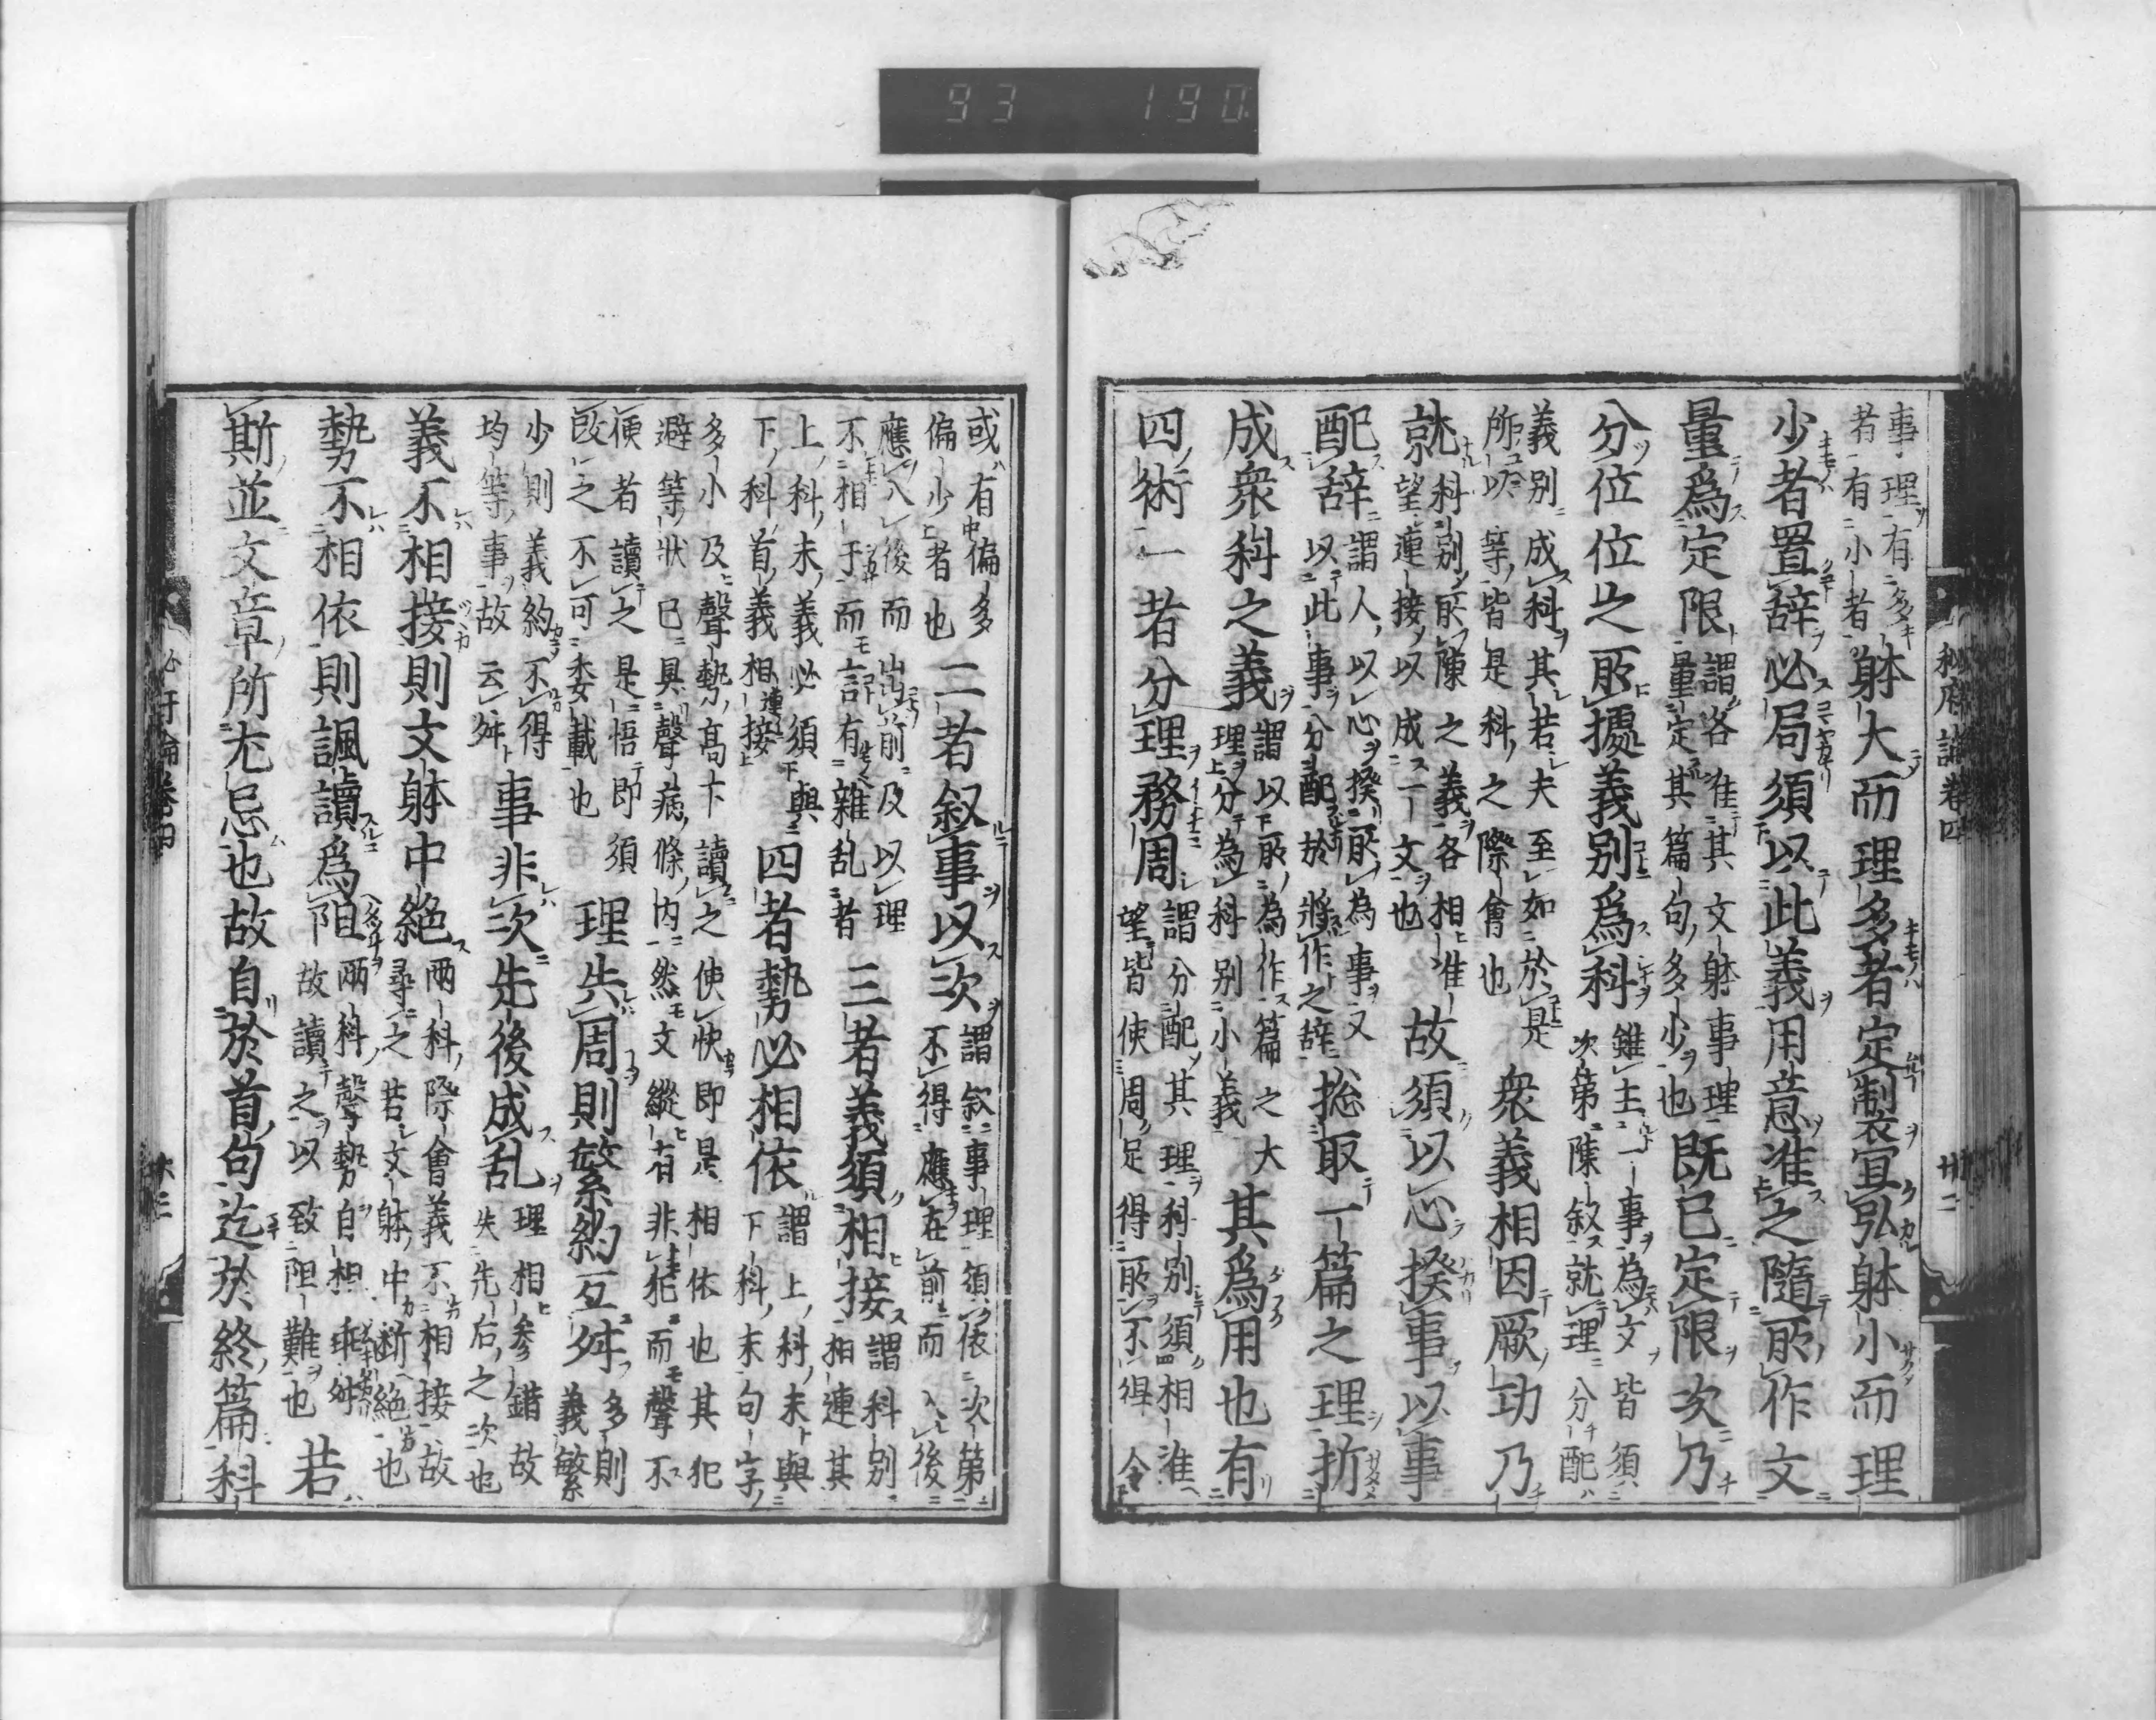 93 190
秘府論卷四 廿二
事理有多
者有小者躰大而理多者定制宜弘躰小而理
少者置辞必局須以此義用意准之隨所作文
量爲定限謂各准其文躰事理
量定其篇句多少也既已定限次乃
分位位之所據義別爲科雖主一事為文皆須
次第陳叙就理分配
義別成科其若夫至如於是
所以等皆是科之際會也衆義相因厥功乃
就科別所陳之義各相准
望連接以成一文也故須以心揆事以事
配辞謂人以心揆所為事又
以此事分配於將作之辞捴取一篇之理折
成衆科之義謂以所為作篇之大
理分為科別小義其爲用也有
四術一者分理務周謂分配其理科別須相准
望皆使周足得所不得令
或有偏多
偏少者也二者叙事以次謂叙事理須依次第
不得應在前而入後
應入後而出前及以理
不相于而言有雜乱者三者義須相接謂科別
相連其
上科末義必須與
下科首義相連接四者勢必相依謂上科末與
下科末句字
多小及聲勢高下讀之使快即是相依也其犯
避等狀已具聲病條内然文縱有非犯而聲不
便者讀之是悟即須
改之不可委載也理失周則繁約互舛多則
義繁
少則義約不得
均等事故云舛事非次先後成乱理相参錯故
失先后之次也
義不相接則文躰中絶両科際會義不相接故
尋之若文躰中断絶也
勢不相依則諷讀爲阻両科聲勢自相乖舛
故讀之以致阻難也若
斯並文章所尤忌也故自於首句迄於終篇科